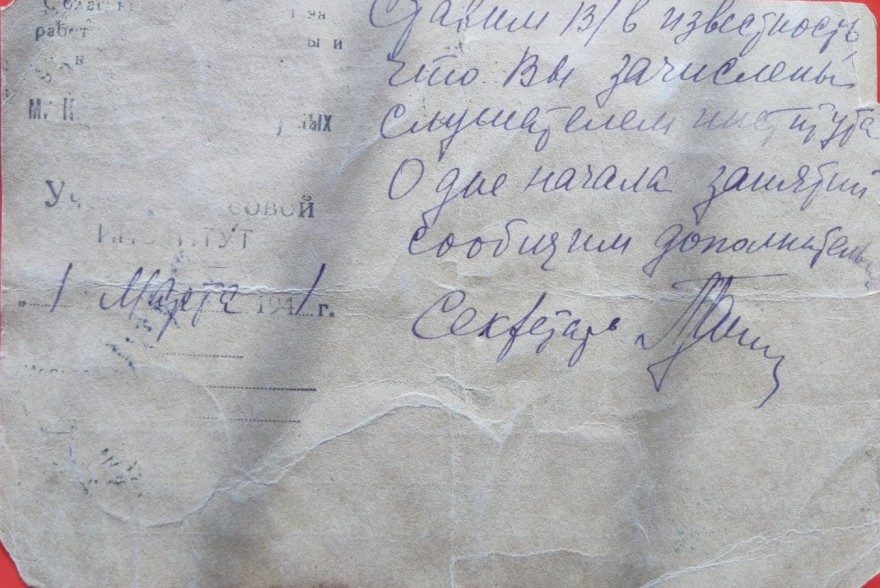 на
работ
ы и
в
М. Н
ных
Уч совой
ИНСТИТУТ
„ 1 Марта 1941 г.
Ставим В/ в известность
что Вы зачислены
слушателем института
О дне начала занятий
сообщим дополнительно
Секретарь